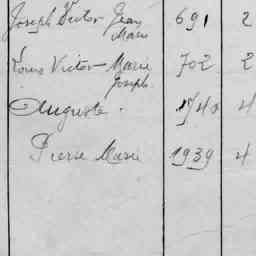 Joseph Victor Jean 691 2
Marie
Louis Victor Marie 702 2
Joseph
Auguste. 1740 4
Pierre Marie 1939 4